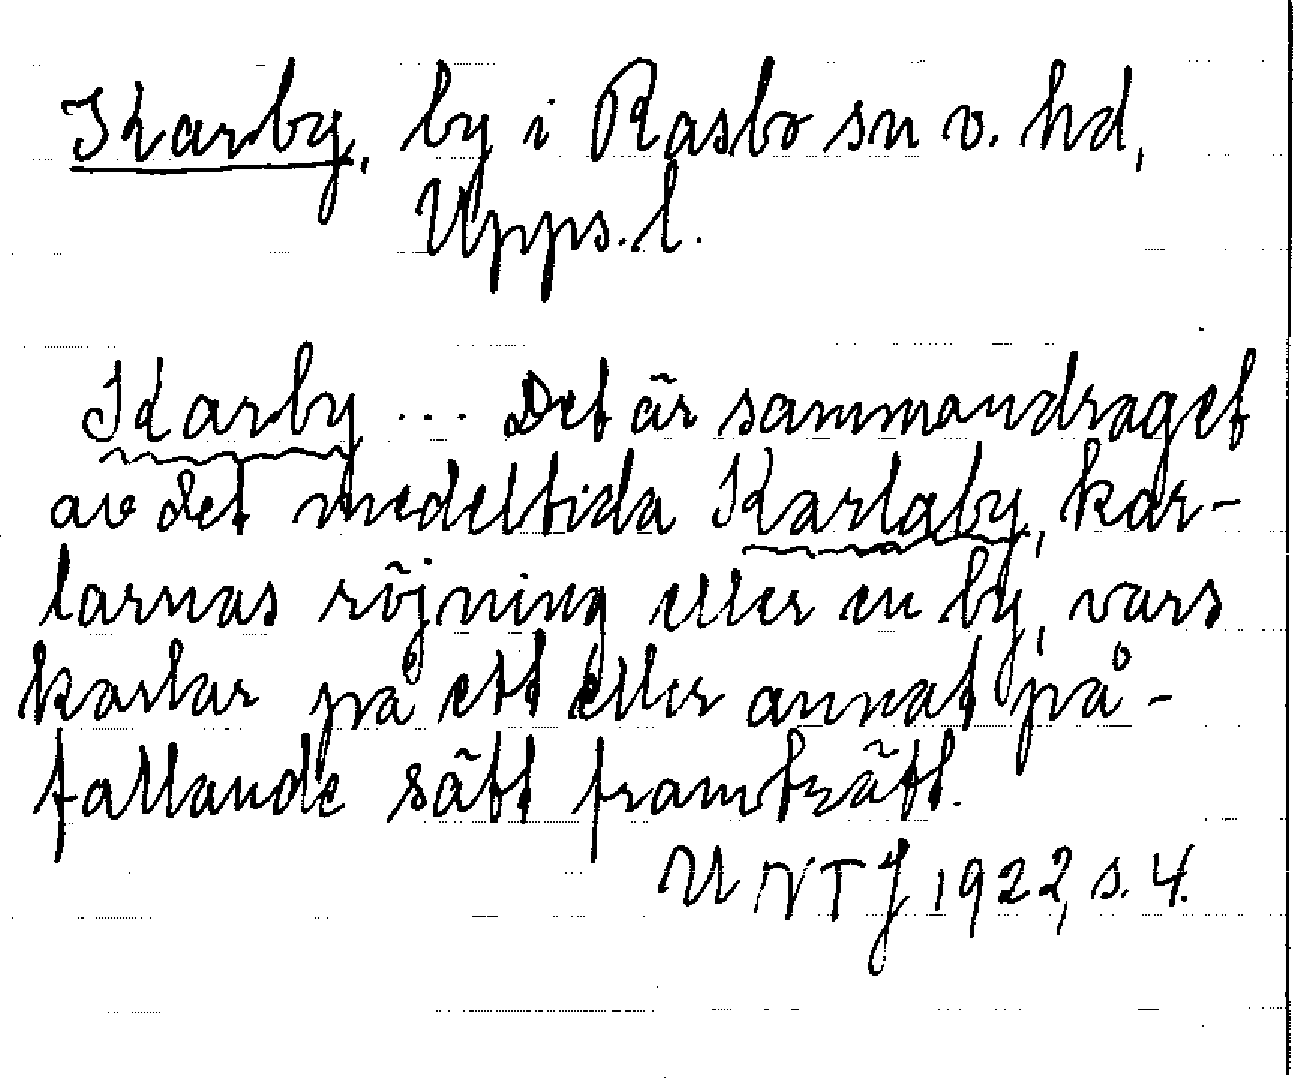 Karby, by i Rasbo sn o. hd,
Upps. l.
Karby ... Det är sammandraget
av det medeltida Karlaby, kar-
larnas röjning eller en by, vars
karlar på ett eller annat på-
fallande sätt framträtt.
UNTJ 1922, s. 4.